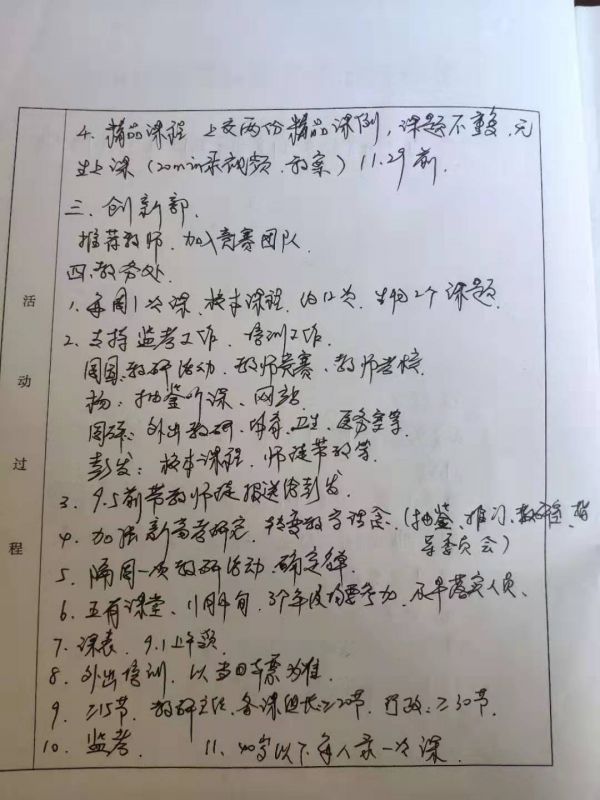 4. 精品课程 上交两份精品课例，课题不重复，无
生上课（20min录视频，教案）11.29前.
三. 创新部.
推荐教师，加入竞赛团队
四. 教务处.
1. 每周1次课，校本课程，约12次，生物2个课题.
2. 支持监考工作，培训工作.
教研活动，教师竞赛，教师考核.
杨：抽签听课、网站
外出教研、体育、卫生、医务室等
彭发：校本课程，师徒带教等
3. 9.5前带教师徒报送给彭发
4. 加强新高考研究，转变教学理念.（抽签、推门、教研室、指
导委员会）
5. 隔周一次教研活动，确定名单.
6. 五有课堂，11月中旬，3个年段均要参加，及早落实人员.
7. 课表，9.1上午领
8. 外出培训，以当日车票为准
9. ≥15节，教研主任、备课组长≥20节，行政：≥30节.
10. 监考. 11、40岁以下每人录一次课.
活
动
过
程